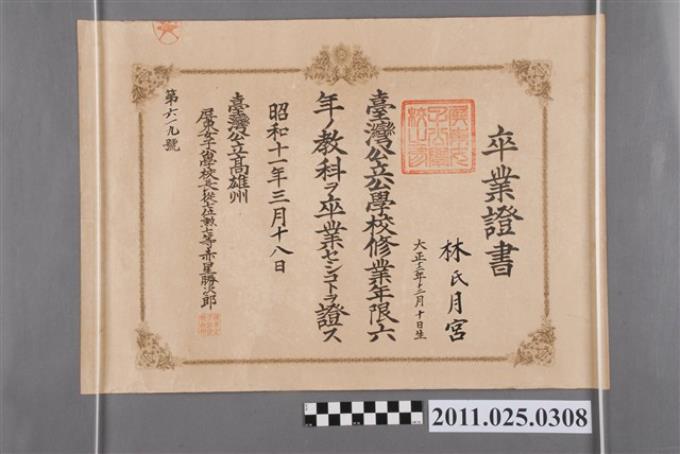 卒業證書
林氏月宮
大正十二年十二月十日生
臺灣公立公學校修業年限六
年ノ教科ヲ卒業セシコトヲ證ス
昭和十一年三月十八日
臺灣公立高雄州
屏東女子公學校長從七位勲八等赤星勝次郎
第六一九號
2011.025.0308